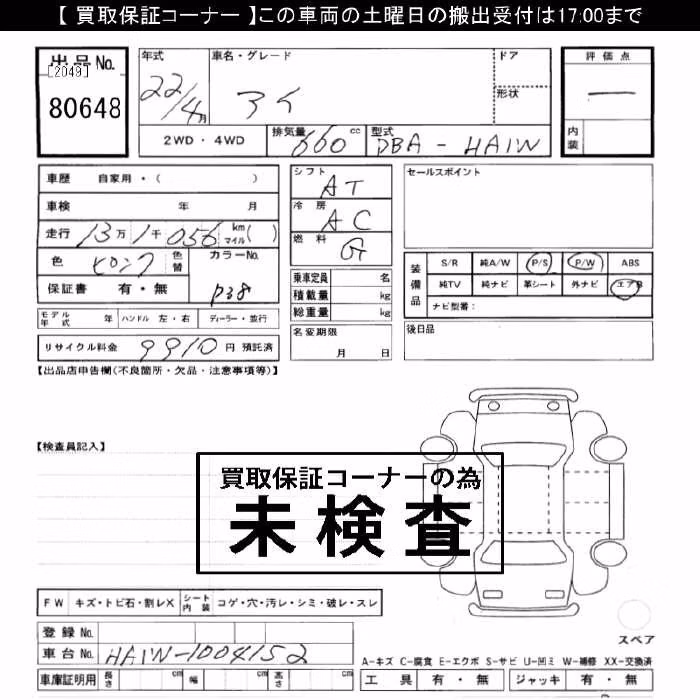 【 買取保証コーナー 】この車両の土曜日の搬出受付は17:00まで
出品 No.
[2049]
80648
年式
22/4月
車名・グレード
アイ
ドア
形状
評価点
—
内装
2WD ・ 4WD
排気量 660 cc
型式 DBA - HA1W
車歴 自家用・( )
車検 年 月
走行 13万 1千 056 km マイル ( )
色 ピンク 色替
カラーNo. P38
保証書 有・無
シフト AT
冷房 AC
燃料 G
乗車定員 名
積載量 kg
総重量 kg
セールスポイント
装備品
S/R 純A/W P/S P/W ABS
純TV 純ナビ 革シート 外ナビ エアB
ナビ型番:
モデル年式 年 ハンドル 左・右 ディーラー・並行
名変期限 月 日
後日品
リサイクル料金 9910 円 預託済
【出品店申告欄(不良箇所・欠品・注意事項等)】
【検査員記入】
買取保証コーナーの為
未検査
FW キズ・トビ石・割レX シート内装 コゲ・穴・汚レ・シミ・破レ・スレ
登録 No.
車台 No. HA1W-1004152
車庫証明用 長さ cm 幅 cm 高さ cm
スペア
A-キズ C-腐食 E-エクボ S-サビ U-凹ミ W-補修 XX-交換済
工具 有・無 ジャッキ 有・無